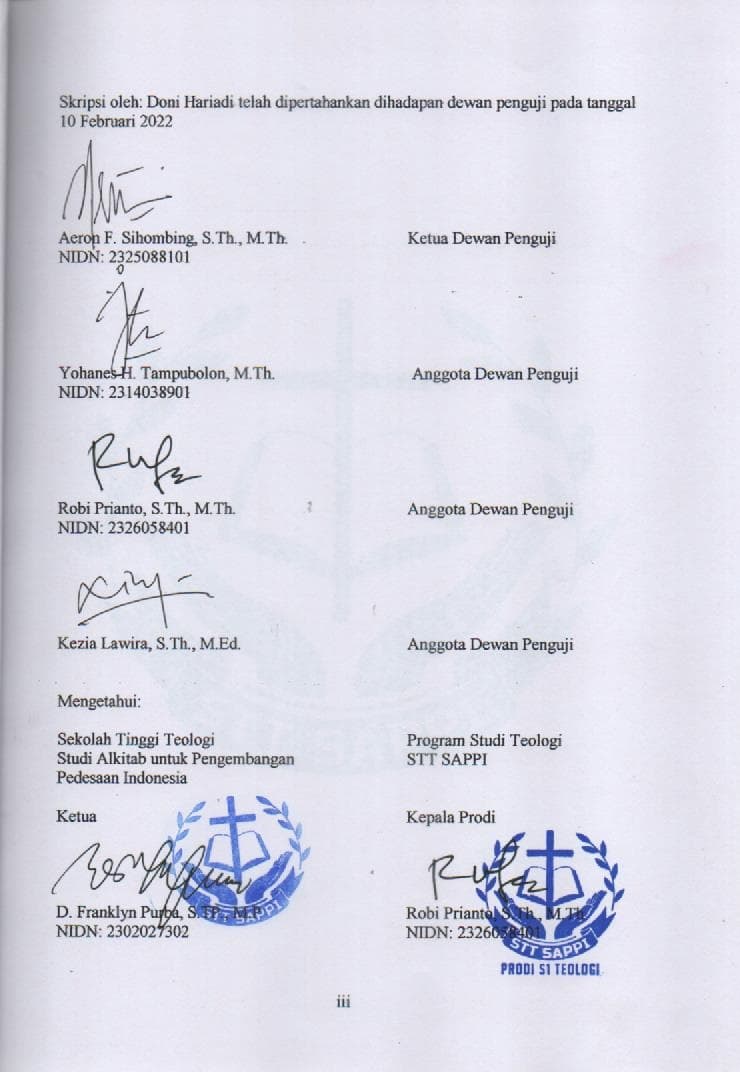 Skripsi oleh: Doni Hariadi telah dipertahankan dihadapan dewan penguji pada tanggal
10 Februari 2022
Aeron F. Sihombing, S.Th., M.Th.
Ketua Dewan Penguji
NIDN: 2325088101
Yohanes H. Tampubolon, M.Th.
Anggota Dewan Penguji
NIDN: 2314038901
Robi Prianto, S.Th., M.Th.
Anggota Dewan Penguji
NIDN: 2326058401
Kezia Lawira, S.Th., M.Ed.
Anggota Dewan Penguji
Mengetahui:
Sekolah Tinggi Teologi
Studi Alkitab untuk Pengembangan
Pedesaan Indonesia
Program Studi Teologi
STT SAPPI
Ketua
Kepala Prodi
D. Franklyn Purba, S.TP., M.P.
NIDN: 2302027302
STT SAPPI
Robi Prianto, S.Th., M.Th.
NIDN: 2326058401
STT SAPPI
PRODI S1 TEOLOGI
iii